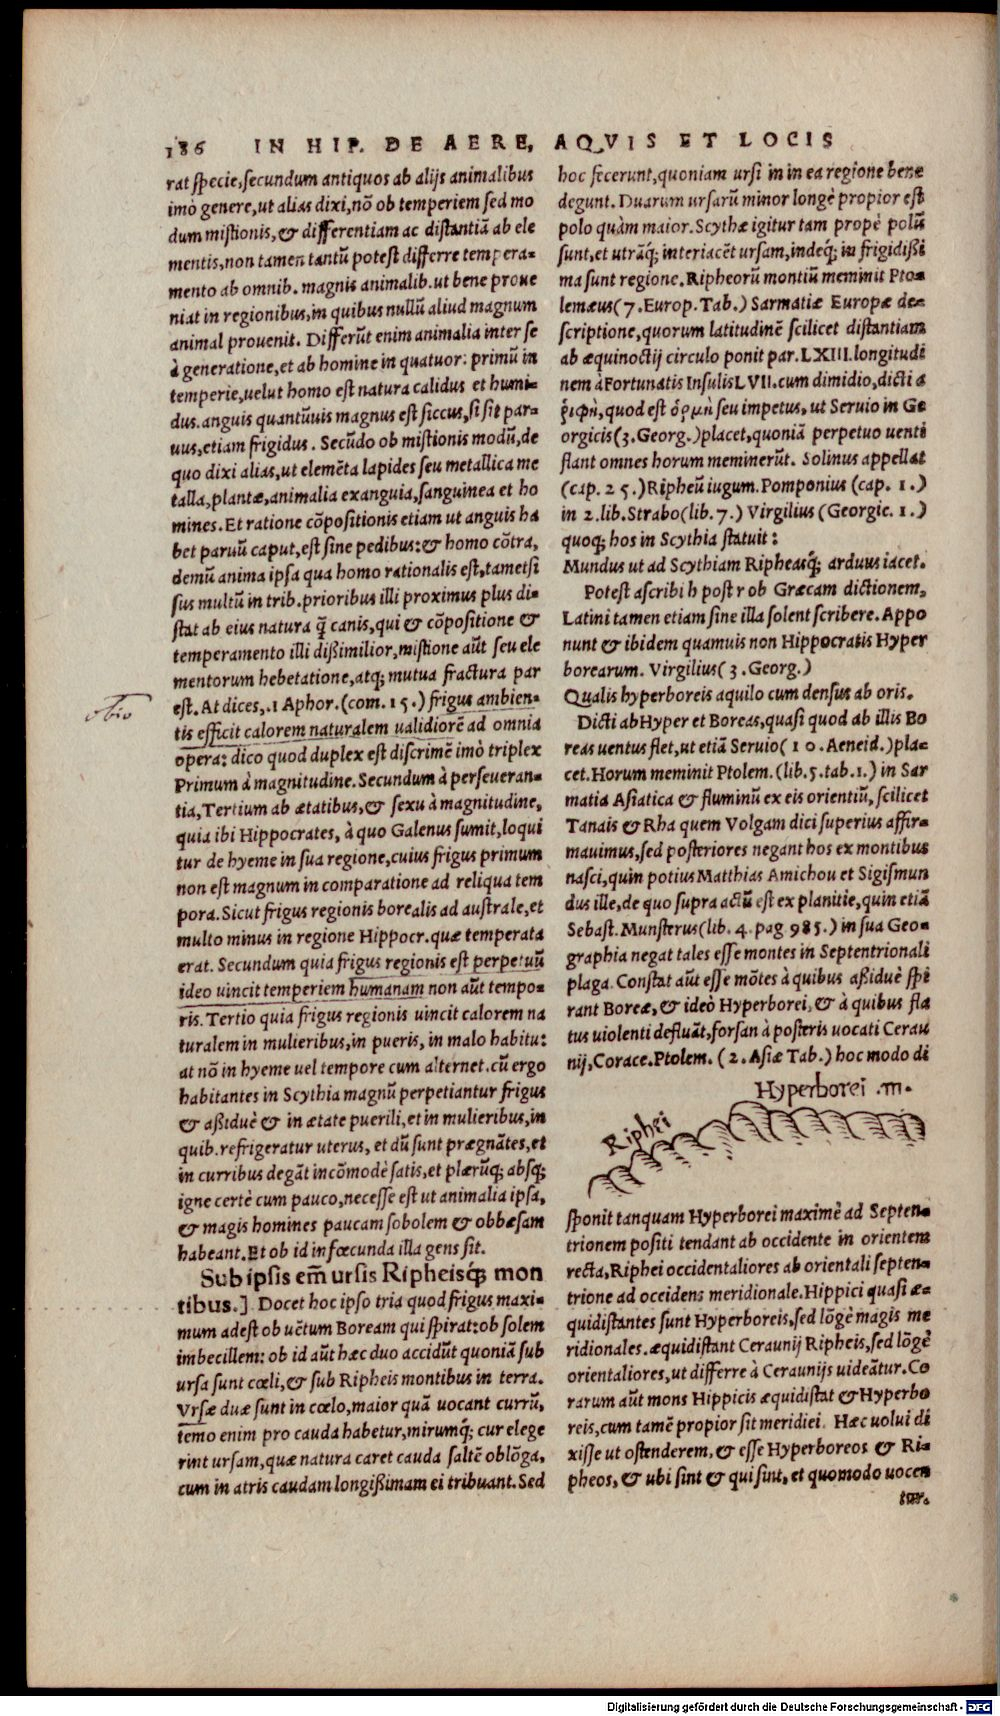 186 IN HIP. DE AERE, AQVIS ET LOCIS
rat specie, secundum antiquos ab alijs animalibus
imò genere, ut alias dixi, nõ ob temperiem sed mo
dum mistionis, & differentiam ac distantiã ab ele
mentis, non tamen tantũ potest differre tempera-
mento ab omnib. magnis animalib. ut bene proue
niat in regionibus, in quibus nullũ aliud magnum
animal prouenit. Differũt enim animalia inter se
à generatione, et ab homine in quatuor: primũ in
temperie, uelut homo est natura calidus et humi-
dus. anguis quantũuis magnus est siccus, si sit par-
uus, etiam frigidus. Secũdo ob mistionis modũ, de
quo dixi alias, ut elemẽta lapides seu metallica me
talla, plantæ, animalia exanguia, sanguinea et ho
mines. Et ratione cõpositionis etiam ut anguis ha
bet paruũ caput, est sine pedibus: & homo cõtra,
demũ anima ipsa qua homo rationalis est, tametsi
sus multũ in trib. prioribus illi proximus plus di-
stat ab eius natura q̃ canis, qui & cõpositione &
temperamento illi dißimilior, mistione aũt seu ele
mentorum hebetatione, atq; mutua fractura par
est. At dices, .1 Aphor. (com. 15.) frigus ambien-
obio
tis efficit calorem naturalem ualidiorẽ ad omnia
opera: dico quod duplex est discrimẽ imò triplex
Primum à magnitudine. Secundum à perseueran-
tia, Tertium ab ætatibus, & sexu à magnitudine,
quia ibi Hippocrates, à quo Galenus sumit, loqui
tur de hyeme in sua regione, cuius frigus primum
non est magnum in comparatione ad reliqua tem
pora. Sicut frigus regionis borealis ad australe, et
multo minus in regione Hippocr. quæ temperata
erat. Secundum quia frigus regionis est perpetuũ
ideo uincit temperiem humanam non aũt tempo-
ris. Tertio quia frigus regionis uincit calorem na
turalem in mulieribus, in pueris, in malo habitu:
at nõ in hyeme uel tempore cum alternet. cũ ergo
habitantes in Scythia magnũ perpetiantur frigus
& aßiduè & in ætate puerili, et in mulieribus, in
quib. refrigeratur uterus, et dũ sunt prægnãtes, et
in curribus degãt incõmodè satis, et plærũq; absq;
igne certè cum pauco, necesse est ut animalia ipsa,
& magis homines paucam sobolem & obbæsam
habeant. Et ob id infœcunda illa gens sit.
Sub ipsis em̃ ursis Ripheisq́; mon
tibus.] Docet hoc ipso tria quod frigus maxi-
mum adest ob uẽtum Boream qui spirat: ob solem
imbecillem: ob id aũt hæc duo accidũt quoniã sub
ursa sunt cœli, & sub Ripheis montibus in terra.
Vrsæ duæ sunt in cœlo, maior quã uocant currũ,
temo enim pro cauda habetur, mirumq́; cur elege
rint ursam, quæ natura caret cauda saltẽ oblõga,
cum in atris caudam longißimam ei tribuant. Sed
hoc fecerunt, quoniam ursi in in ea regione bene
degunt. Duarum ursarũ minor longè propior est
polo quàm maior. Scythæ igitur tam propè polũ
sunt, et utrãq; interiacẽt ursam, indeq́; in frigidißi
ma sunt regione. Ripheorũ montiũ meminit Pto-
lemæus (7. Europ. Tab.) Sarmatiæ Europæ de-
scriptione, quorum latitudinẽ scilicet distantiam
ab æquinoctij circulo ponit par. LXIII. longitudi
nem à Fortunatis Insulis LVII. cum dimidio, dicti à
ῥιφὴ, quod est ὁρμὴ seu impetus, ut Seruio in Ge
orgicis (3. Georg.) placet, quoniã perpetuo uenti
flant omnes horum meminerũt. Solinus appellat
(cap. 25.) Ripheũ iugum. Pomponius (cap. 1.)
in 2. lib. Strabo (lib. 7.) Virgilius (Georgic. 1.)
quoq; hos in Scythia statuit:
Mundus ut ad Scythiam Ripheasq́; arduus iacet.
Potest ascribi h post r ob Græcam dictionem,
Latini tamen etiam sine illa solent scribere. Appo
nunt & ibidem quamuis non Hippocratis Hyper
borearum. Virgilius (3. Georg.)
Qualis hyperboreis aquilo cum densus ab oris.
Dicti ab Hyper et Boreas, quasi quod ab illis Bo
reas uentus flet, ut etiã Seruio (10. Aeneid.) pla-
cet. Horum meminit Ptolem. (lib. 5. tab. 1.) in Sar
matia Asiatica & fluminũ ex eis orientiũ, scilicet
Tanais & Rha quem Volgam dici superius affir-
mauimus, sed posteriores negant hos ex montibus
nasci, quin potius Matthias Amichou et Sigismun
dus ille, de quo supra actũ est ex planitie, quin etiã
Sebast. Munsterus (lib. 4. pag 985.) in sua Geo-
graphia negat tales esse montes in Septentrionali
plaga. Constat aũt esse mõtes à quibus aßiduè spi
rant Boreæ, & ideò Hyperborei, & à quibus fla
tus uiolenti defluãt, forsan à posteris uocati Cerau
nij, Corace. Ptolem. (2. Asiæ Tab.) hoc modo di
Hyperborei .m.
Riphei
sponit tanquam Hyperborei maximè ad Septen-
trionem positi tendant ab occidente in orientem
recta, Riphei occidentaliores ab orientali septen-
trione ad occidens meridionale. Hippici quasi æ-
quidistantes sunt Hyperboreis, sed lõgè magis me
ridionales. æquidistant Ceraunij Ripheis, sed lõgè
orientaliores, ut differre à Ceraunijs uideãtur. Co
rarum aũt mons Hippicis æquidistat & Hyperbo
reis, cum tamẽ propior sit meridiei. Hæc uolui di
xisse ut ostenderem, & esse Hyperboreos & Ri-
pheos, & ubi sint & qui sint, et quomodo uocen
tur.
Digitalisierung gefördert durch die Deutsche Forschungsgemeinschaft - DFG